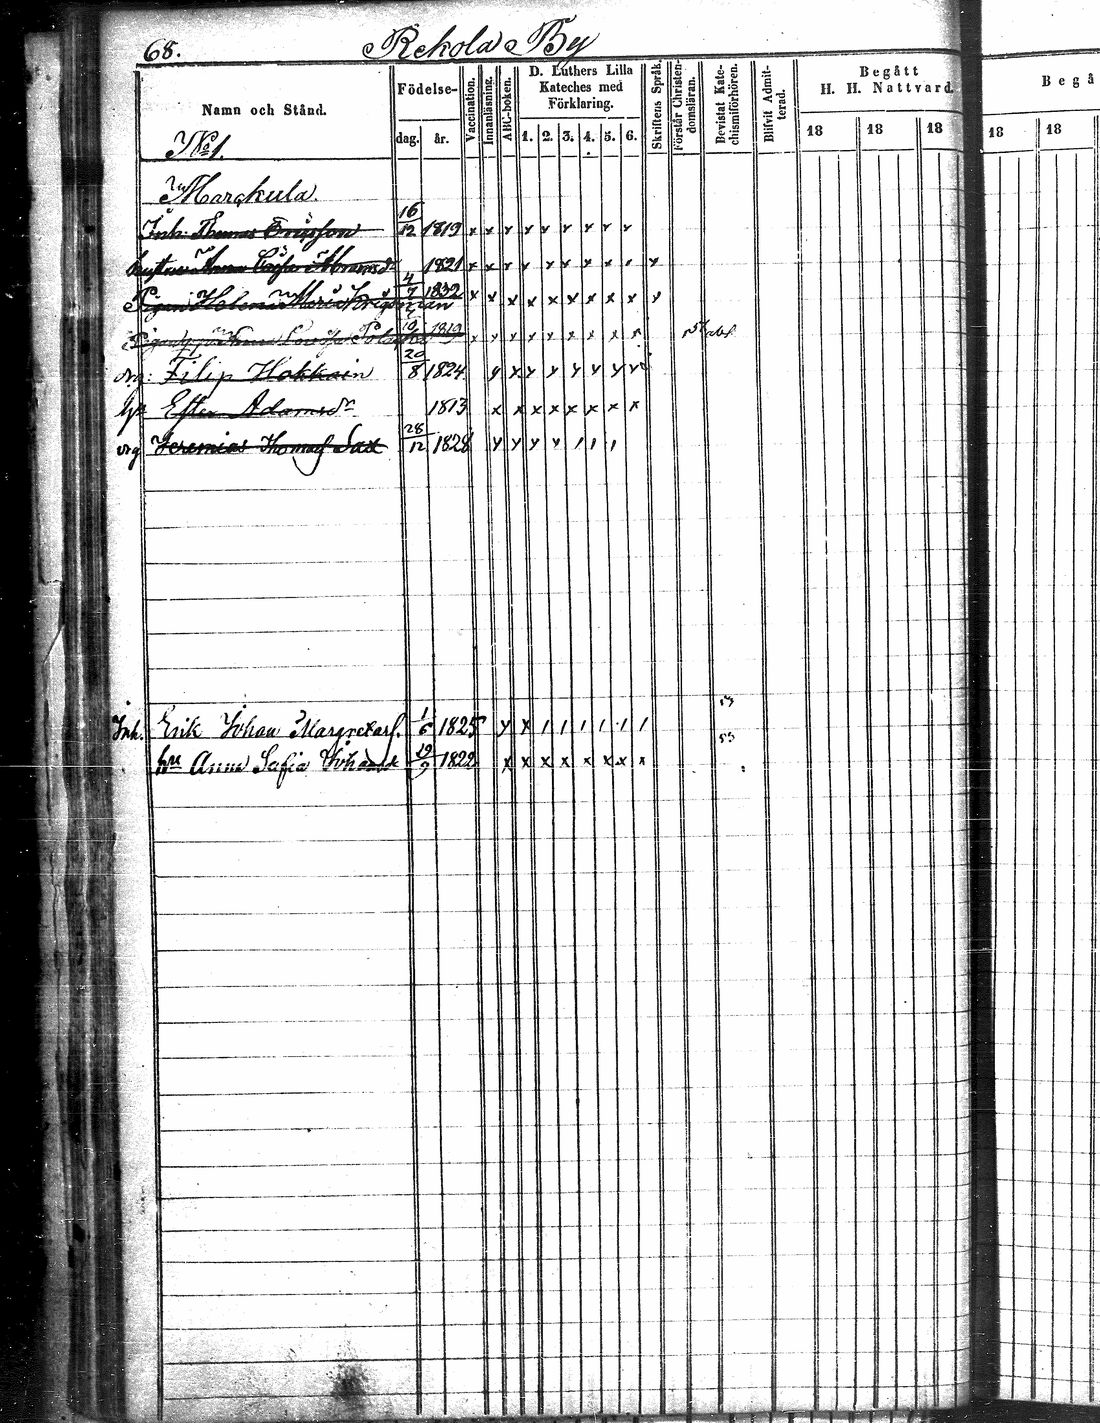 68. Rekola By
Namn och Stånd.
Födelse-
dag. år.
Vaccination.
Innanläsning.
ABC-boken.
D. Luthers Lilla
Kateches med
Förklaring.
1. 2. 3. 4. 5. 6.
Skriftens Språk.
Förstår Christen-
domsläran.
Bevistat Kate-
chismiförhören.
Blifvit Admit-
terad.
Begått
H. H. Nattvard.
18 18 18
Begå
18 18
No 1.
Marqkula.
Inh: Thomas Ericsson 16/12 1819 x x x x x x x x x
Hustrun Anna Cajsa Abramsdr 1821 x x x x x x x x x x
Pigan Helena Maria 4/7 1832 x x x x x x x x x x
Anna Lovisa 1819 x x x x x x x x x
drg: Filip Hakkain 20/8 1824 x x x x x x x x
Ester Adamsdr 1813 x x x x x x x x
drg Jeremias Thomasf Sax 28/12 1828 x x x x / / /
53
Inh. Erik Johan Margretasf. 1/6 1825 x x / / / / / /
53
hu Anna Sofia Johansdr 19/9 1822 x x x x x x x x